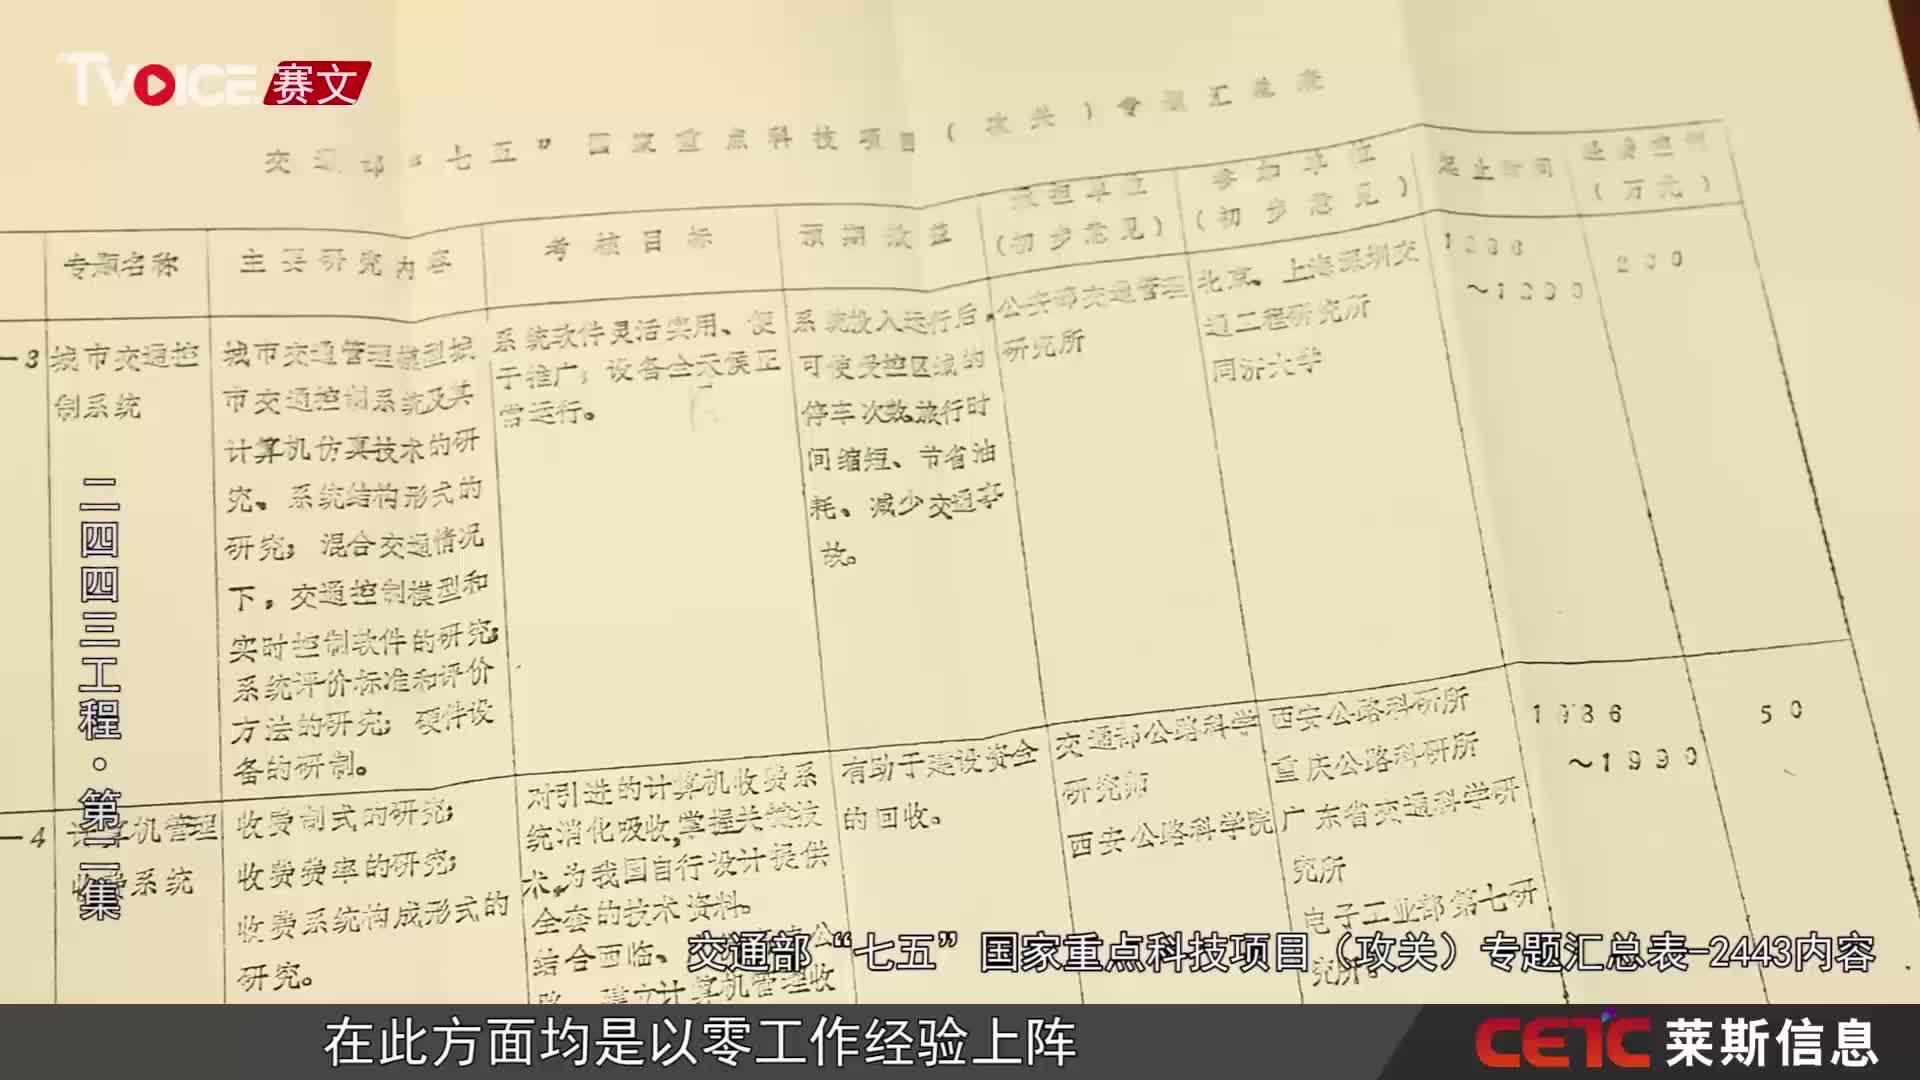 TVOICE 赛文
交通部“七五”国家重点科技项目(攻关)专题汇总表
专题名称
主要研究内容
考核目标
预期效益
承担单位
(初步意见)
参加单位
(初步意见)
起止时间
(万元)
-3
城市交通控
制系统
城市交通管理模型城
市交通控制系统及其
计算机仿真技术的研
究。系统结构形式的
研究；混合交通情况
下，交通控制模型和
实时控制软件的研究；
系统评价标准和评价
方法的研究；硬件设
备的研制。
系统软件灵活实用、便
于推广；设备全天候正
常运行。
系统投入运行后，
可使受控区域的
停车次数、旅行时
间缩短、节省油
耗、减少交通事
故。
公安部交通管理
研究所
北京、上海深圳交
通工程研究所
同济大学
1986
～1990
200
-4
计算机管理
收费系统
收费制式的研究；
收费费率的研究；
收费系统构成形式的
研究。
对引进的计算机收费系
统消化吸收，掌握关键技
术，为我国自行设计提供
全套的技术资料。
结合西临、
建立计算机管理收
有助于建设资金
的回收。
交通部公路科学
研究所
西安公路科学院
西安公路科研所
重庆公路科研所
广东省交通科学研
究所
电子工业部第七研
究所。
1986
～1990
50
二四四三工程·第二集
交通部“七五”国家重点科技项目（攻关）专题汇总表-2443内容
在此方面均是以零工作经验上阵
CETC 莱斯信息